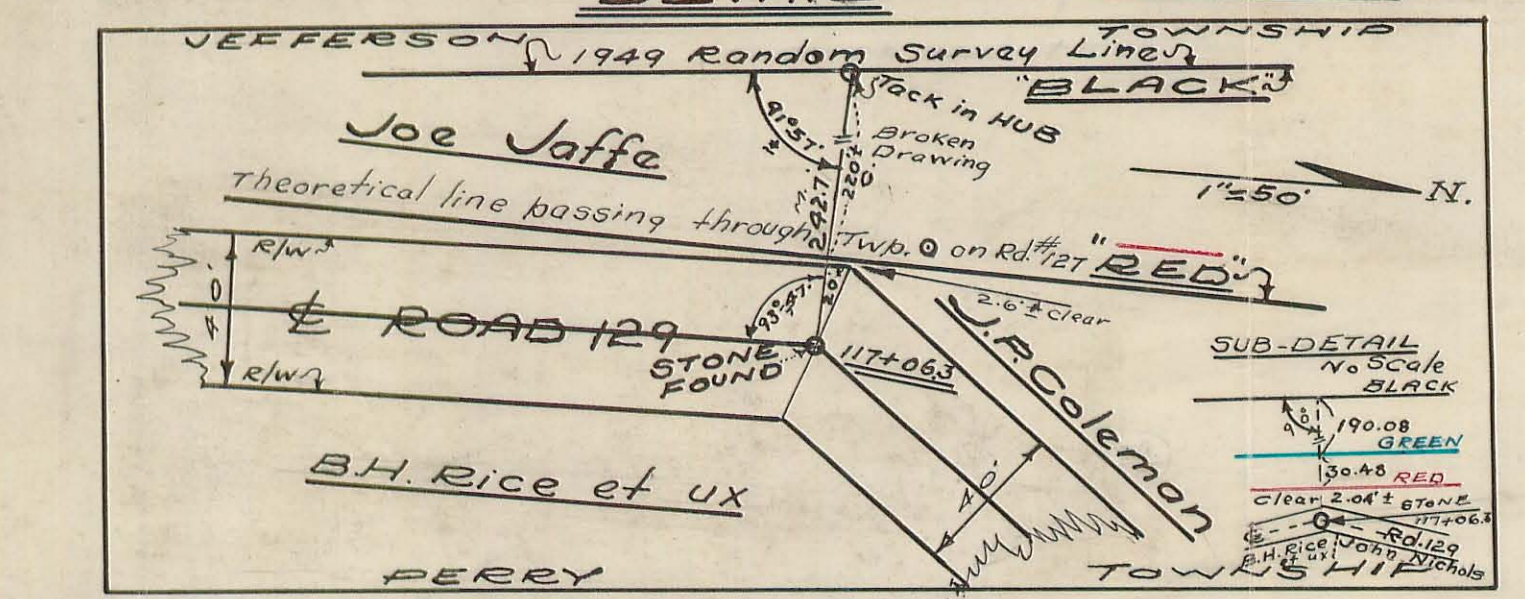 JEFFERSON TOWNSHIP
1949 Random Survey Line
"BLACK"
Tack in HUB
Broken
Drawing
91°57'
±
220'±
242.7'
Joe Jaffe
1"=50' N.
Theoretical line passing through Twp. on Rd.#127 "RED"
R/W
40'
℄ ROAD 129
93°47'
20'±
2.6'± clear
STONE
FOUND
117+06.3
J.P. Coleman
R/W
B.H. Rice et ux
40'
SUB-DETAIL
No Scale
BLACK
90°
190.08
GREEN
30.48 RED
Clear 2.04'± STONE
117+06.3
℄
Rd.129
B.H. Rice
et ux
John Nichols
PERRY TOWNSHIP